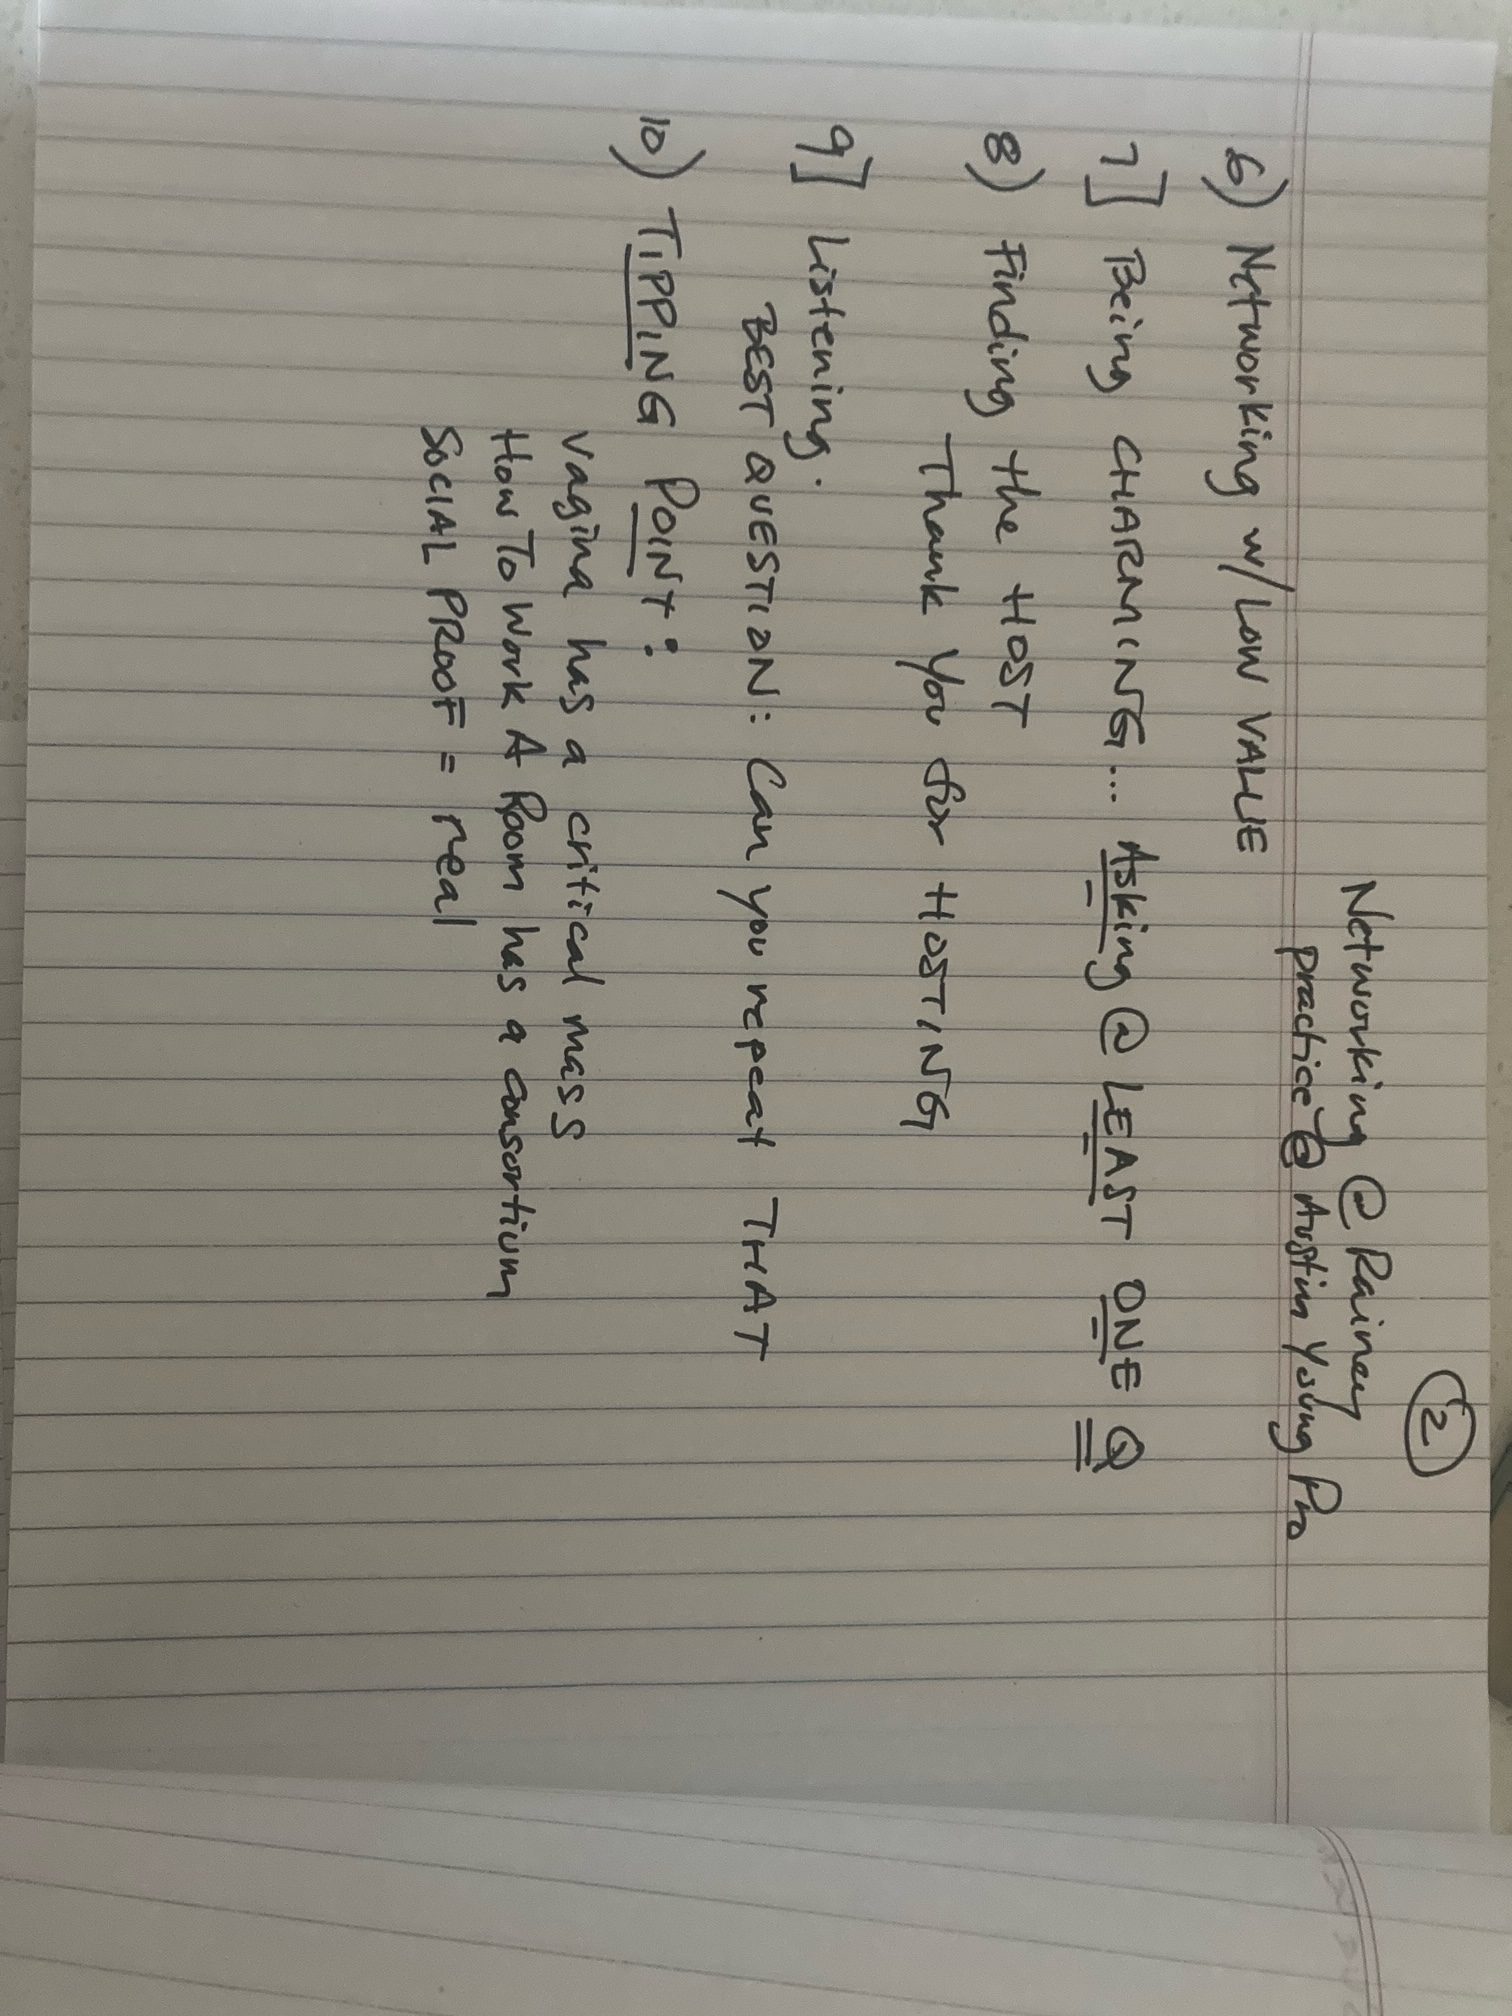 ②
Networking @ Rainey
practice @ Austin Young Pro
6) Networking w/ LOW VALUE
7] Being CHARMING... Asking @ LEAST ONE Q
8) Finding the HOST
Thank you for HOSTING
9] Listening.
BEST QUESTION: Can you repeat THAT
10) TIPPING POINT:
vagina has a critical mass
How To Work A Room has a consortium
SOCIAL PROOF = real